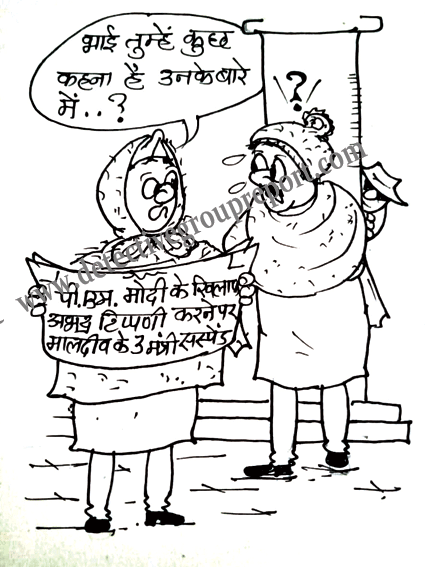 भाई तुम्हें कुछ
कहना हैं उनके बारे
में..?
?
www.detectivegroupreport.com
पी.एम. मोदी के खिलाफ
अभद्र टिप्पणी करने पर
मालदीव के 3 मंत्री सस्पेंड